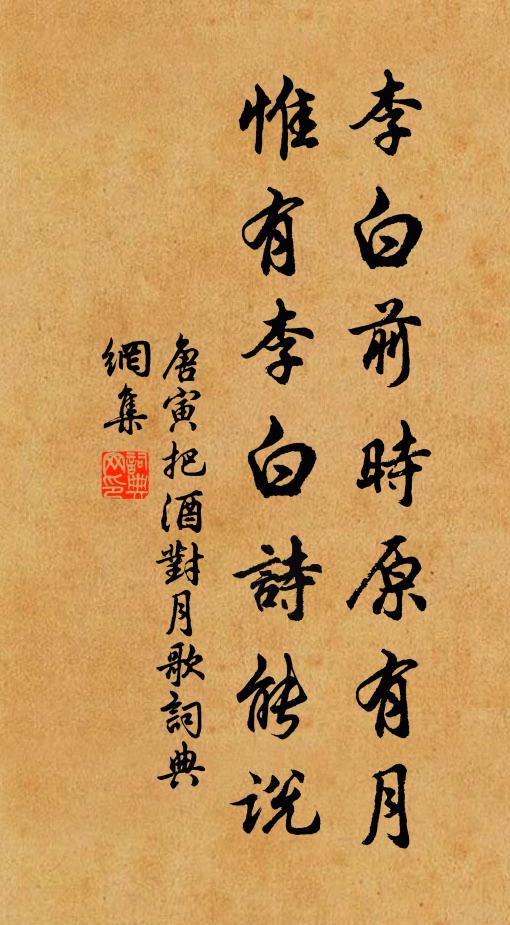 李白前時原有月
惟有李白詩能說
唐寅把酒對月歌詞典
網集
詞典網印